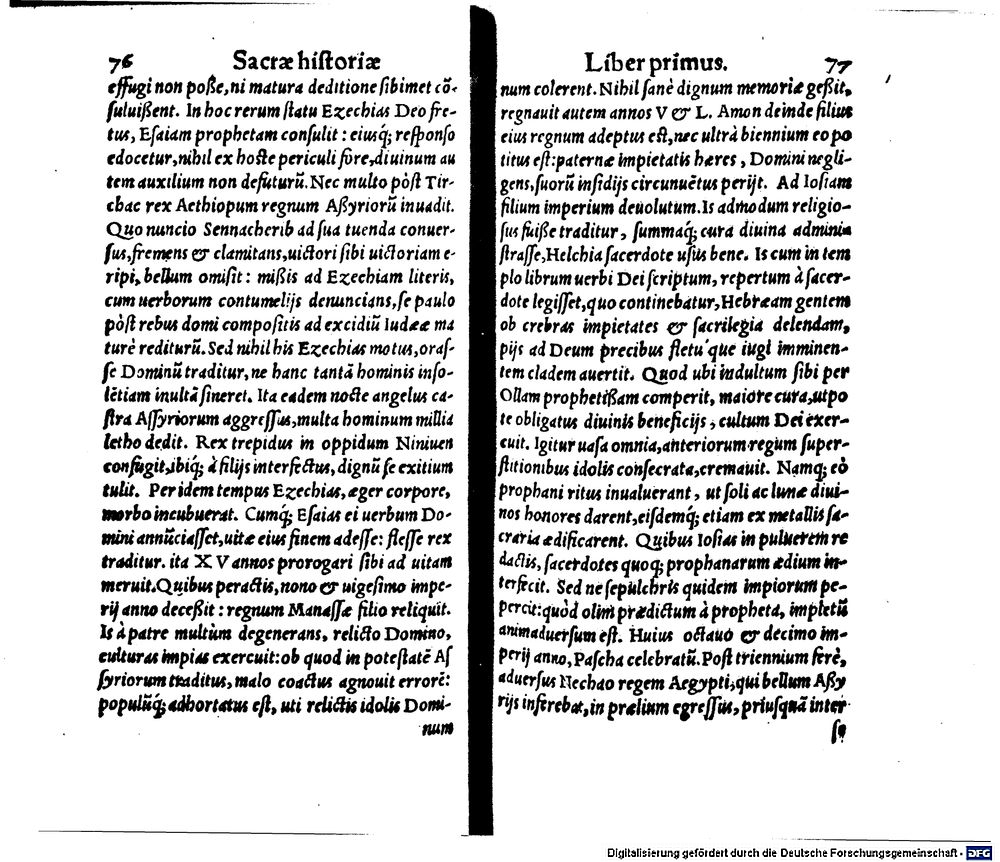 76 Sacræ historiæ
effugi non poße, ni matura deditione sibimet cō-
suluißent. In hoc rerum statu Ezechias Deo fre-
tus, Esaiam prophetam consulit : eiusq́; responso
edocetur, nihil ex hoste periculi fore, diuinum au
tem auxilium non defuturū. Nec multo pòst Tir-
chac rex Aethiopum regnum Aßyriorū inuadit.
Quo nuncio Sennacherib ad sua tuenda conuer-
sus, fremens & clamitans, uictori sibi uictoriam e-
ripi, bellum omisit : mißis ad Ezechiam literis,
cum uerborum contumelijs denuncians, se paulo
pòst rebus domi compositis ad excidiū Iudææ ma
turè rediturū. Sed nihil his Ezechias motus, oras-
se Dominū traditur, ne hanc tantā hominis inso-
lētiam inultā sineret. Ita eadem nocte angelus ca-
stra Assyriorum aggressus, multa hominum millia
letho dedit. Rex trepidus in oppidum Niniuen
confugit, ibiq́; à filijs interfectus, dignū se exitium
tulit. Per idem tempus Ezechias, æger corpore,
morbo incubuerat. Cumq́; Esaias ei uerbum Do-
mini annūciasset, uitæ eius finem adesse : flesse rex
traditur. ita XV annos prorogari sibi ad uitam
meruit. Quibus peractis, nono & uigesimo impe-
rij anno deceßit : regnum Manassæ filio reliquit.
Is à patre multùm degenerans, relicto Domino,
culturas impias exercuit: ob quod in potestatē As
syriorum traditus, malo coactus agnouit errorē:
populūq́; adhortatus est, uti relictis idolis Domi-
num
Liber primus. 77
num colerent. Nihil sanè dignum memoriæ geßit,
regnauit autem annos V & L. Amon deinde filius
eius regnum adeptus est, nec ultrà biennium eo po
titus est: paternæ impietatis hæres, Domini negli-
gens, suorū insidijs circunuētus perijt. Ad Iosiam
filium imperium deuolutum. Is admodum religio-
sus fuiße traditur, summaq́; cura diuina adminis
strasse, Helchia sacerdote usus bene. Is cum in tem
plo librum uerbi Dei scriptum, repertum à sacer-
dote legisset, quo continebatur, Hebræam gentem
ob crebras impietates & sacrilegia delendam,
pijs ad Deum precibus fletu'que iugi imminen-
tem cladem auertit. Quod ubi indultum sibi per
Ollam prophetißam comperit, maiore cura, utpo
te obligatus diuinis beneficijs, cultum Dei exer-
cuit. Igitur uasa omnia, anteriorum regum super-
stitionibus idolis consecrata, cremauit. Namq́; eò
prophani ritus inualuerant, ut soli ac lunæ diui-
nos honores darent, eisdemq́; etiam ex metallis sa-
craria ædificarent. Quibus Iosias in puluerem re
dactis, sacerdotes quoq; prophanarum ædium in-
terfecit. Sed ne sepulchris quidem impiorum pe-
percit: quòd olim prædictum à propheta, impletū
animaduersum est. Huius octauo & decimo im-
perij anno, Pascha celebratū. Post triennium ferè,
aduersus Nechao regem Aegypti, qui bellum Aßy
rijs inferebat, in prælium egressus, priusquā inter
se
Digitalisierung gefördert durch die Deutsche Forschungsgemeinschaft - DFG